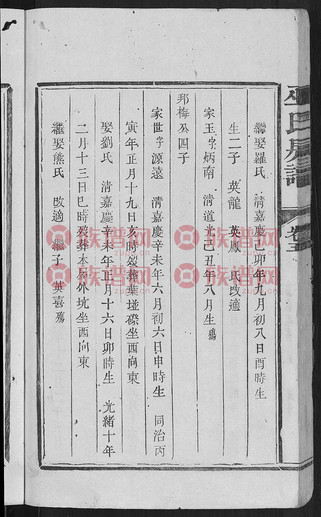 巫氏房譜
卷三
繼娶羅氏 清嘉慶己卯年九月初八日酉時生
生二子 英龍 英鳳 氏改適
家玉字炳南 清道光己丑年八月生 殤
邦梅公四子
家世字源遠 清嘉慶辛未年六月初六日申時生 同治丙
寅年正月十九日亥時歿葬葉墶磜坐西向東
娶劉氏 清嘉慶辛未年正月十六日卯時生 光緒十年
二月十三日巳時歿葬本局外坑坐西向東
繼娶熊氏 改適 繼子 英喜 殤
族譜网
zupu.cn
族譜网
zupu.cn